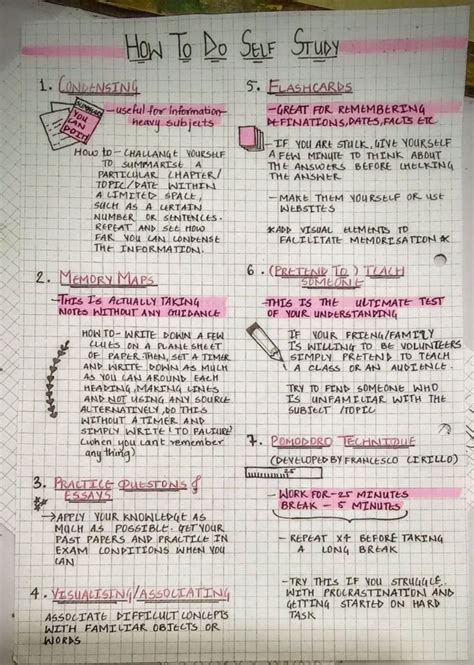 How To Do Self Study
1. CONDENSING
- useful for information-
heavy subjects
SUMMARY
YOU
CAN
DO IT!
HOW to - CHALLANGE YOURSELF
TO SUMMARISE A
PARTICULAR CHAPTER/
TOPIC/DATE WITHIN
A LIMITED SPACE,
SUCH AS A CERTAIN
NUMBER OR SENTENCES.
REPEAT AND SEE HOW
FAR YOU CAN CONDENSE
THE INFORMATION.
2. MEMORY MAPS
- THIS IS ACTUALLY TAKING
NOTES WITHOUT ANY GUIDANCE
HOW TO - WRITE DOWN A FEW
CLUES ON A PLANE SHEET
OF PAPER. THEN, SET A TIMER
AND WRITE DOWN AS MUCH
AS YOU CAN AROUND EACH
HEADING, MAKING LINES
AND NOT USING ANY SOURCE
ALTERNATIVELY, DO THIS
WITHOUT A TIMER AND
SIMPLY WRITE 'TO FAILURE'
(when you cant remember
any thing)
3. PRACTICE QUESTONS &
ESSAYS
→ APPLY YOUR KNOWLEDGE AS
MUCH AS POSSIBLE. GET YOUR
PAST PAPERS AND PRACTICE IN
EXAM CONDITIONS WHEN YOU
CAN
4. VISUALISING/ASSOCIATING
ASSOCIATE DIFFICULT CONCEPTS
WITH FAMILIAR OBJECTS OR
WORDS
5. FLASHCARDS
- GREAT FOR REMEMBERING
DEFINATIONS, DATES, FACTS ETC
- IF YOU ARE STUCK, GIVE YOURSELF
A FEW MINUTE TO THINK ABOUT
THE ANSWERS BEFORE CHECKING
THE ANSWER
- MAKE THEM YOURSELF OR USE
WEBSITES
*ADD VISUAL ELEMENTS TO
FACILITATE MEMORISATION *
6. (PRETEND TO) TEACH
SOMEONE
- THIS IS THE ULTIMATE TEST
OF YOUR UNDERSTANDING
IF YOUR FRIENG/FAMILY
IS WILLING TO BE VOLUNTEERS
SIMPLY PRETEND TO TEACH
A CLASS OR AN AUDIENCE.
TRY TO FIND SOMEONE WHO
IS UNFAMILIAR WITH THE
SUBJECT /TOPIC
7. POMODORO TECHNIQUE
(DEVELOPED BY FRANCESCO CIRILLO)
25
- WORK FOR - 25 MINUTES
BREAK - 5 MINUTES
- REPEAT X4 BEFORE TAKING
A LONG BREAK
- TRY THIS IF YOU STRUGGLE
WITH PROCRASTINATION AND
GETTING STARTED ON HARD
TASK